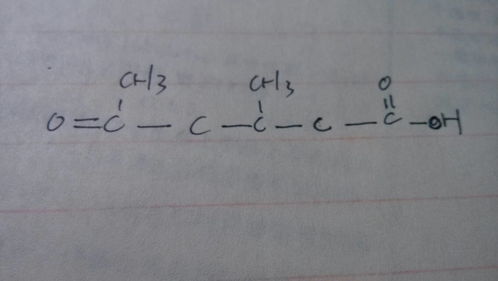 CH3 CH3 O
O=C — C — C — C — C — OH